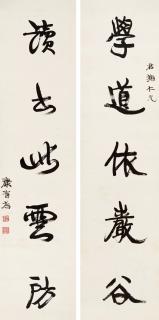 學道依巖谷
仁兄
讀書此雲房
康有為